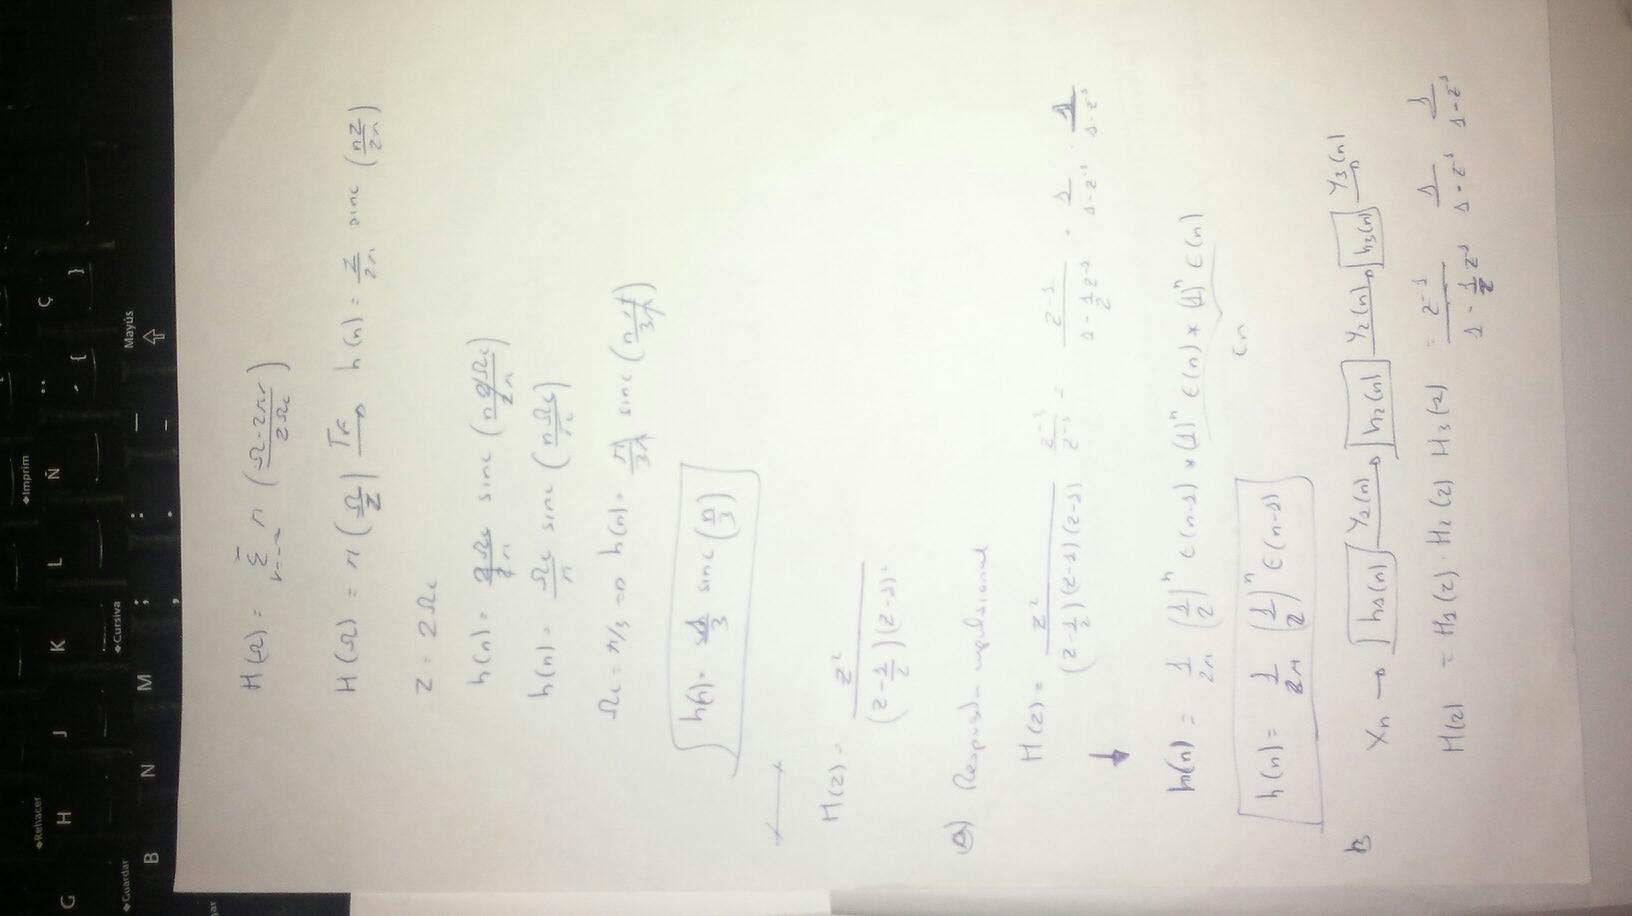 H(Ω) = Σ r=-∞ ∞ Π ( (Ω-2πr) / 2Ωc )
H(Ω) = Π ( Ω / Z ) TF→ h(n) = Z/2π sinc ( nZ / 2π )
Z = 2Ωc
h(n) = 2Ωc / 2π sinc ( n 2Ωc / 2π )
h(n) = Ωc / π sinc ( n Ωc / π )
Ωc = π/3 ⇒ h(n) = π / 3π sinc ( n π / 3π )
h(n) = 1/3 sinc ( n/3 )
H(z) = z² / (z - 1/2)(z-1)²
a) Respuesta impulsional
H(z) = z² / (z - 1/2)(z-1)(z-1) z⁻³ / z⁻³ = z⁻¹ / 1 - 1/2 z⁻¹ · 1 / 1-z⁻¹ · 1 / 1-z⁻¹
↓
h(n) = 1/2π (1/2)ⁿ ε(n-1) * (1)ⁿ ε(n) * (1)ⁿ ε(n)
h(n) = 1/2π (1/2)ⁿ ε(n-1)
b
Xn → h1(n) Y1(n) → h2(n) Y2(n) → h3(n) Y3(n)
H(z) = H1(z) · H2(z) H3(z) = z⁻¹ / 1 - 1/2 z⁻¹ 1 / 1-z⁻¹ 1 / 1-z⁻¹
Guardar
Rehacer
G
H
J
K
L
Ñ
Ç
B
N
M
Cursiva
Imprim
Mayús
;
,
:
.
_
-
{
}